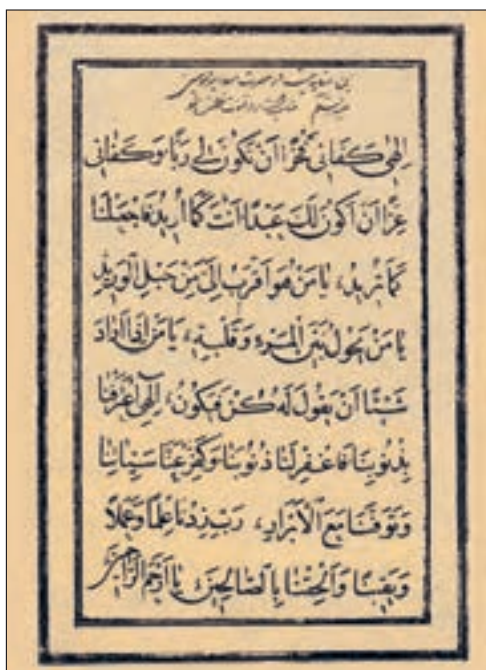 إلهي كَفَانِي فَخْرًا أَنْ تَكُونَ لِي رَبًّا وَكَفَانِي
عِزًّا أَنْ أَكُونَ لَكَ عَبْدًا أَنْتَ كَمَا أُرِيدُ فَاجْعَلْنَا
كَمَا تُرِيدُ، يَا مَنْ هُوَ أَقْرَبُ إِلَيَّ مِنْ حَبْلِ الْوَرِيدِ
يَا مَنْ يَحُولُ بَيْنَ الْمَرْءِ وَقَلْبِهِ، يَا مَنْ إِذَا أَرَادَ
شَيْئًا أَنْ يَقُولَ لَهُ كُنْ فَيَكُونُ، إِلٰهِي اعْتَرَفْنَا
بِذُنُوبِنَا فَاغْفِرْ لَنَا ذُنُوبَنَا وَكَفِّرْ عَنَّا سَيِّئَاتِنَا
وَتَوَفَّنَا مَعَ الْأَبْرَارِ، رَبِّ زِدْنَا عِلْمًا وَعَمَلًا
وَيَقِينًا وَأَلْحِقْنَا بِالصَّالِحِينَ يَا أَرْحَمَ الرَّاحِمِينَ